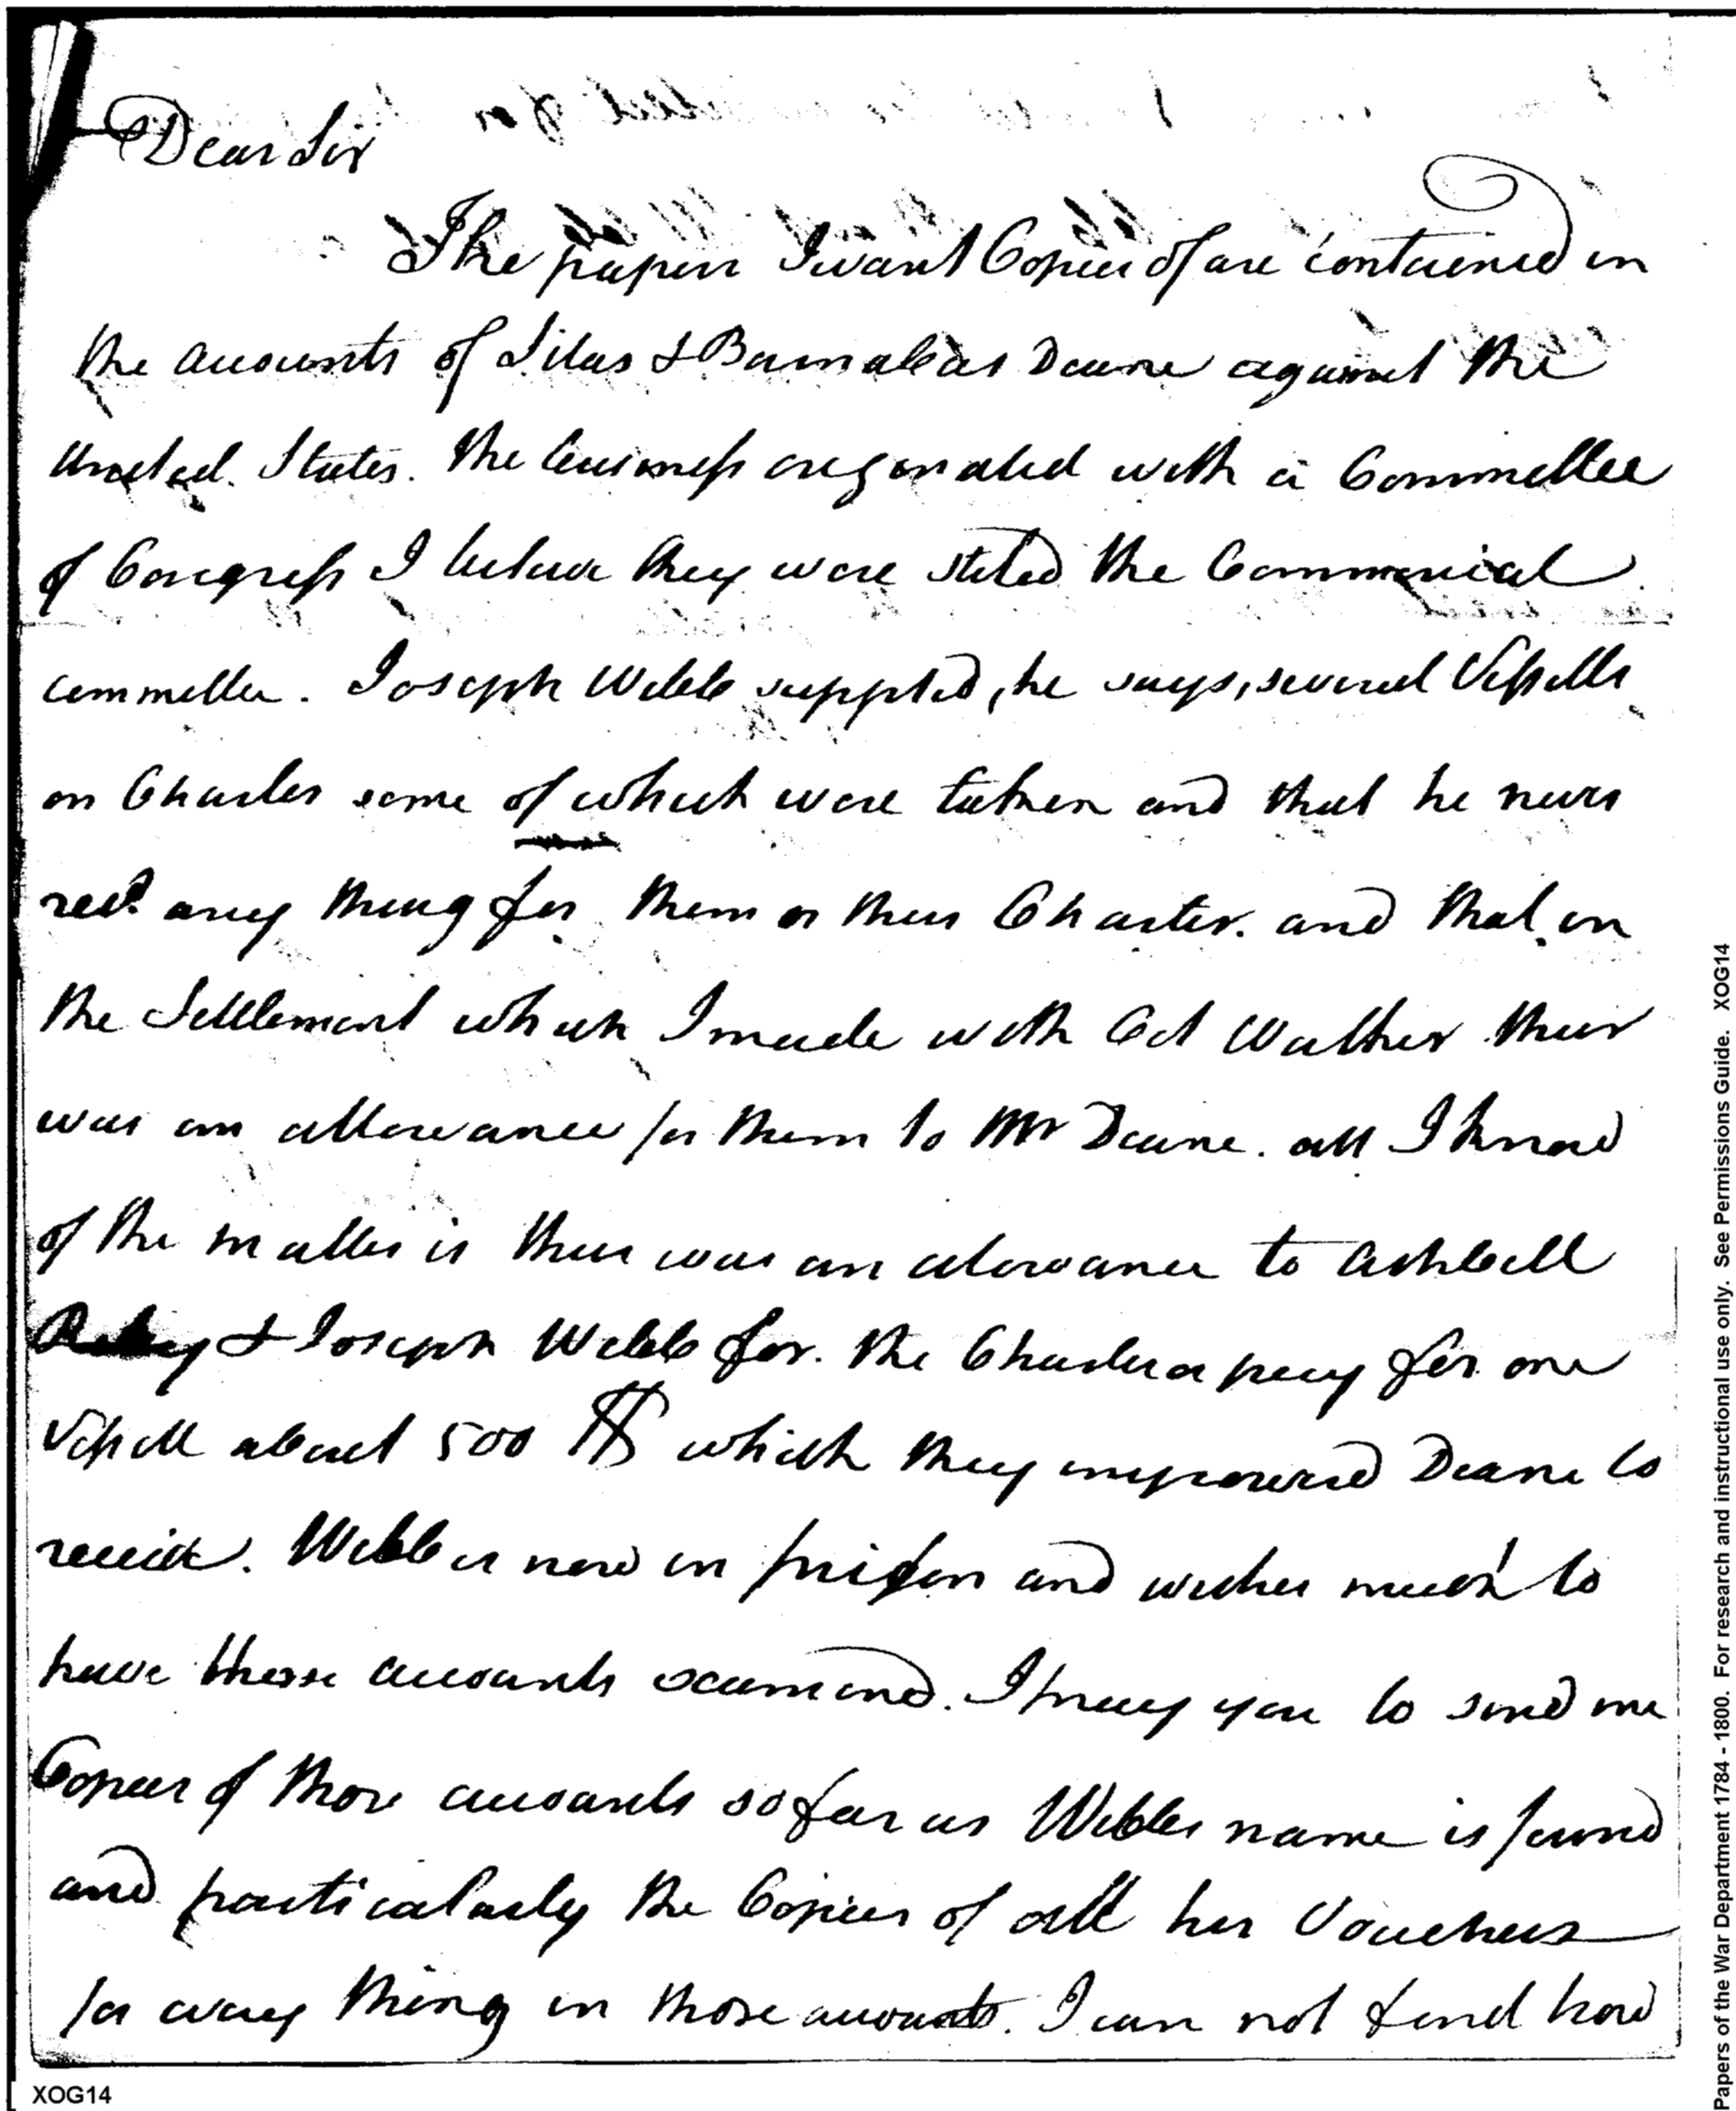 Dear Sir
The papers I want Copies of are contained in
the accounts of Silas & Barnabas Deane against the
United States. The business originated with a Committee
of Congress I believe they were stiled the Commercial
committee. Joseph Webb supplied, he says, several Vessells
on Charter some of which were taken and that he never
recd. any thing for them or their Charter. and that in
the Settlement which I made with Col Walker their
was an allowance for them to Mr Deane. all I know
of the matter is their was an alowance to Ashbell
& Joseph Webb for. the Charter a pay for one
Vessell about 500 $ which they impowered Deane to
receive. Webb is now in prison and wishes much to
have those accounts examined. I pray you to send me
Copies of those accounts so far as Webbs name is found
and particularly the Copies of all his Vouchers
for every thing in those accounts. I can not find how
XOG14
Papers of the War Department 1784 - 1800. For research and instructional use only. See Permissions Guide. XOG14